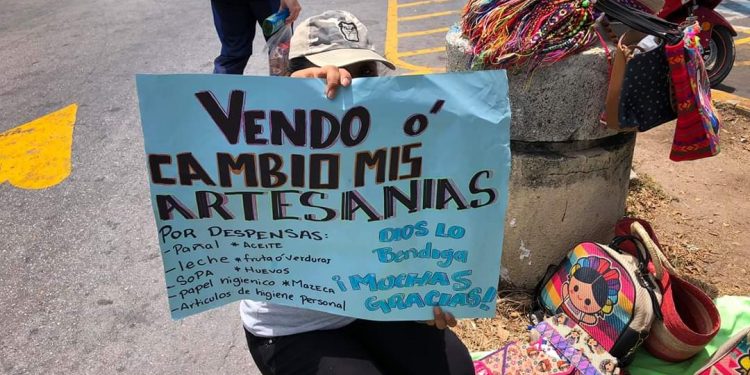 VENDO ó
CAMBIO MIS
ARTESANIAS
POR DESPENSAS:
-Pañal * ACEITE
-leche * fruta ó verduras
-SOPA * HUEVOS
-papel higienico * Mazeca
-Articulos de higiene personal
DIOS LO
Bendoga
¡MUCHAS
GRACIAS!